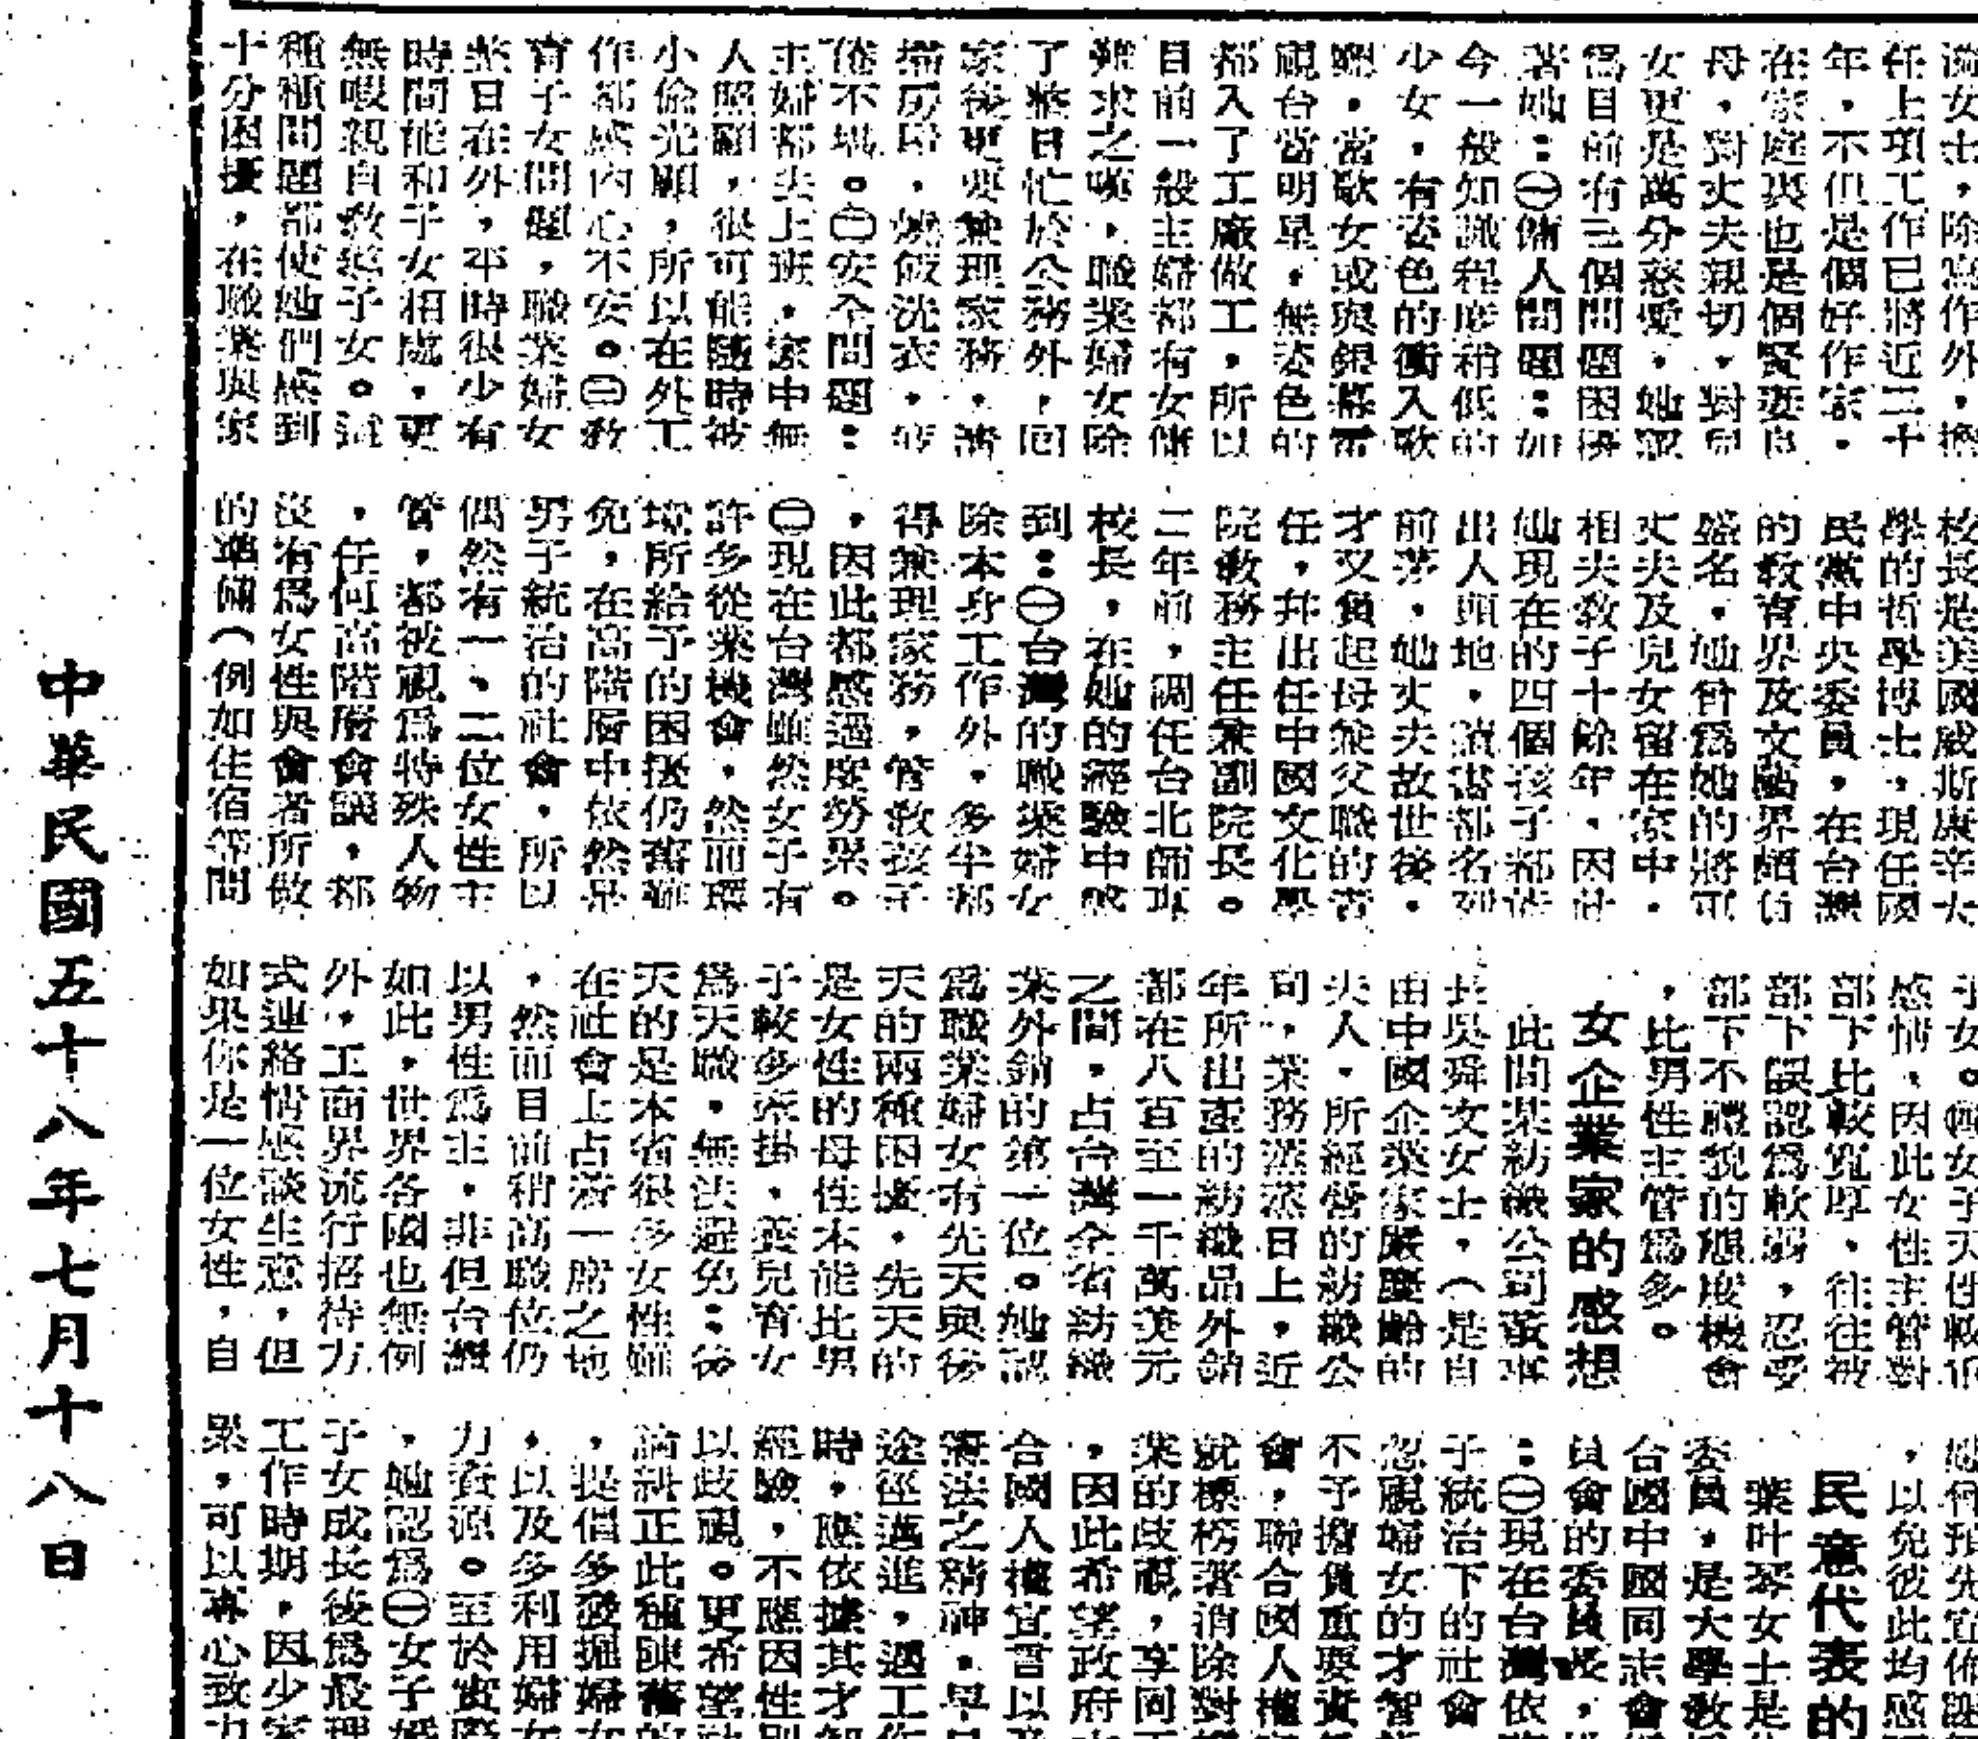 漪女士，除寫作外，擔
任上項工作已將近二十
年，不但是個好作家，
在家庭裏也是個賢妻良
母，對丈夫親切，對兒
女更是萬分慈愛，她認
爲目前有三個問題困擾
著她：㊀傭人問題：如
今一般知識程度稍低的
少女，有姿色的衝入歌
壇，當歌女或與銀幕電
視台當明星，無姿色的
都入了工廠做工，所以
目前一般主婦都有女傭
難求之嘆，職業婦女除
了整日忙於公務外，囘
家後更要兼理家務，
掃房屋，燒飯洗衣，疲
倦不堪。㊁安全問題：
主婦都去上班，家中無
人照顧，很可能隨時被
小偷光顧，所以在外工
作都感內心不安。㊂敎
育子女問題，職業婦女
整日在外，平時很少有
時間能和子女相處，更
無暇親自敎導子女。這
種種問題都使她們感到
十分困擾，在職業與家
校長是美國威斯康辛大
學的哲學博士，現任國
民黨中央委員，在台灣
的敎育界及文藝界頗負
盛名，她曾爲她的將軍
丈夫及兒女留在家中，
相夫敎子十餘年，因此
她現在的四個孩子都能
出人頭地，讀書都名列
前茅，她丈夫故世後，
才又負起母兼父職的責
任，幷出任中國文化學
院敎務主任兼副院長。
二年前，調任台北師專
校長，在她的經驗中感
到：㊀台灣的職業婦女
除本身工作外，多半都
得兼理家務，管敎孩子
，因此都感過度勞累。
㊁現在台灣雖然女子有
許多從業機會，然而環
境所給予的困擾仍舊難
免，在高階層中依然是
男子統治的社會，所以
偶然有一、二位女性主
管，都被視爲特殊人物
，任何高階層會議，都
沒有爲女性與會者所做
的準備（例如住宿等問
子女。㊃女子天性較重
感情，因此女性主管對
部下比較寬厚，往往被
部下誤認爲軟弱，忍受
部下不禮貌的態度機會
，比男性主管爲多。
女企業家的感想
此間某紡織公司董事
長吳舜文女士，（是自
由中國企業家嚴慶齡的
夫人，所經營的紡織公
司，業務蒸蒸日上，近
年所出產的紡織品外銷
都在八百至一千萬美元
之間，占台灣全省紡織
業外銷的第一位。她認
爲職業婦女有先天與後
天的兩種困擾，先天的
是女性的母性本能比男
子較多牽掛，養兒育女
爲天職，無法避免；後
天的是本省很多女性雖
在社會上占着一席之地
，然而目前稍高職位仍
以男性爲主，非但台灣
如此，世界各國也無例
外，工商界流行招待方
式連絡情感談生意，但
如果你是一位女性，自
，以免彼此均感
民意代表的
葉叶琴女士是
委員，是大學敎
合國中國同志會
員會的委員長，
：㊀現在台灣依
子統治下的社會
忽視婦女的才智
不予擔負重要責
會，聯合國人權
就標榜著消除對
業的歧視，享同
，因此希望政府
合國人權宣言以及
憲法之精神，早日
途徑邁進，遇工作
時，應依據其才
經驗，不應因性別
以歧視。更希望
論糾正此種陳舊的
，提倡多發掘婦女
，以及多利用婦女
力資源。至於實際
，她認爲㊀女子
子女成長後爲最理
工作時期，因少家
累，可以專心致力
中華民國五十八年七月十八日